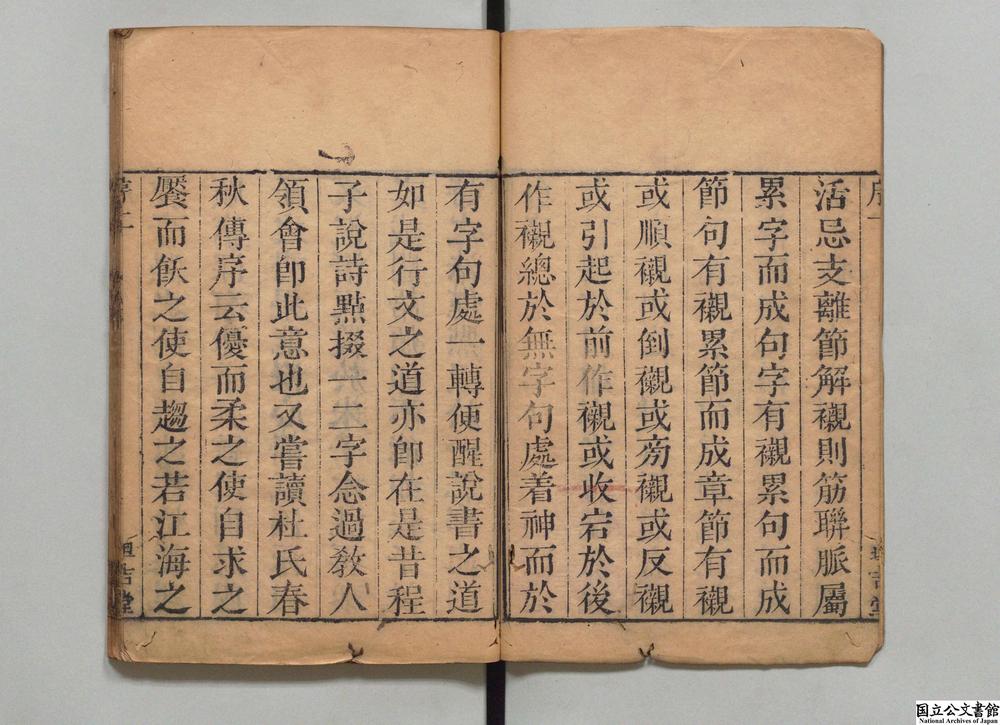 活忌支離節解襯則筋聯脈屬
累字而成句字有襯累句而成
節句有襯累節而成章節有襯
或順襯或倒襯或旁襯或反襯
或引起於前作襯或收宕於後
作襯總於無字句處着神而於
有字句處一轉便醒說書之道
如是行文之道亦卽在是昔程
子說詩點掇一二字念過敎人
領會卽此意也又嘗讀杜氏春
秋傳序云優而柔之使自求之
饜而飫之使自趨之若江海之
序二
国立公文書館
National Archives of Japan